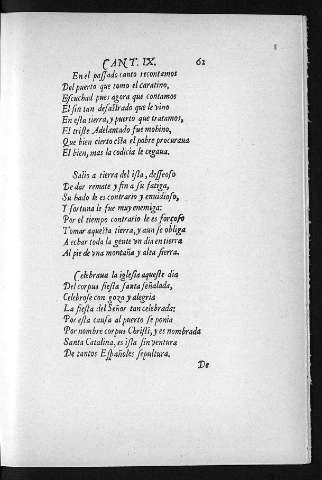 CANT. IX. 62
En el passado canto recontamos
Del puerto que tomo el caratino,
Escuchad pues agora que contamos
El fin tan desastrado que le vino
En esta tierra, y puerto que tratamos,
El triste Adelantado fue mohino,
Que bien cierto esta el pobre procuraua
El bien, mas la codicia le cegaua.
Salio a tierra del isla, desseoso
De dar remate y fin a su fatiga,
Su hado le es contrario y enuidioso,
Y fortuna le fue muy enemiga:
Por el tiempo contrario le es forçoso
Tomar aquesta tierra, y aun se obliga
A echar toda la gente vn dia en tierra
Al pie de vna montaña y alta sierra.
Celebraua la iglesia aqueste dia
Del corpus fiesta santa señalada,
Celebrose con gozo y alegria
La fiesta del Señor tan celebrada:
Por esta causa al puerto se ponia
Por nombre corpus Christi, y es nombrada
Santa Catalina, es isla sin ventura
De tantos Españoles sepultura.
De